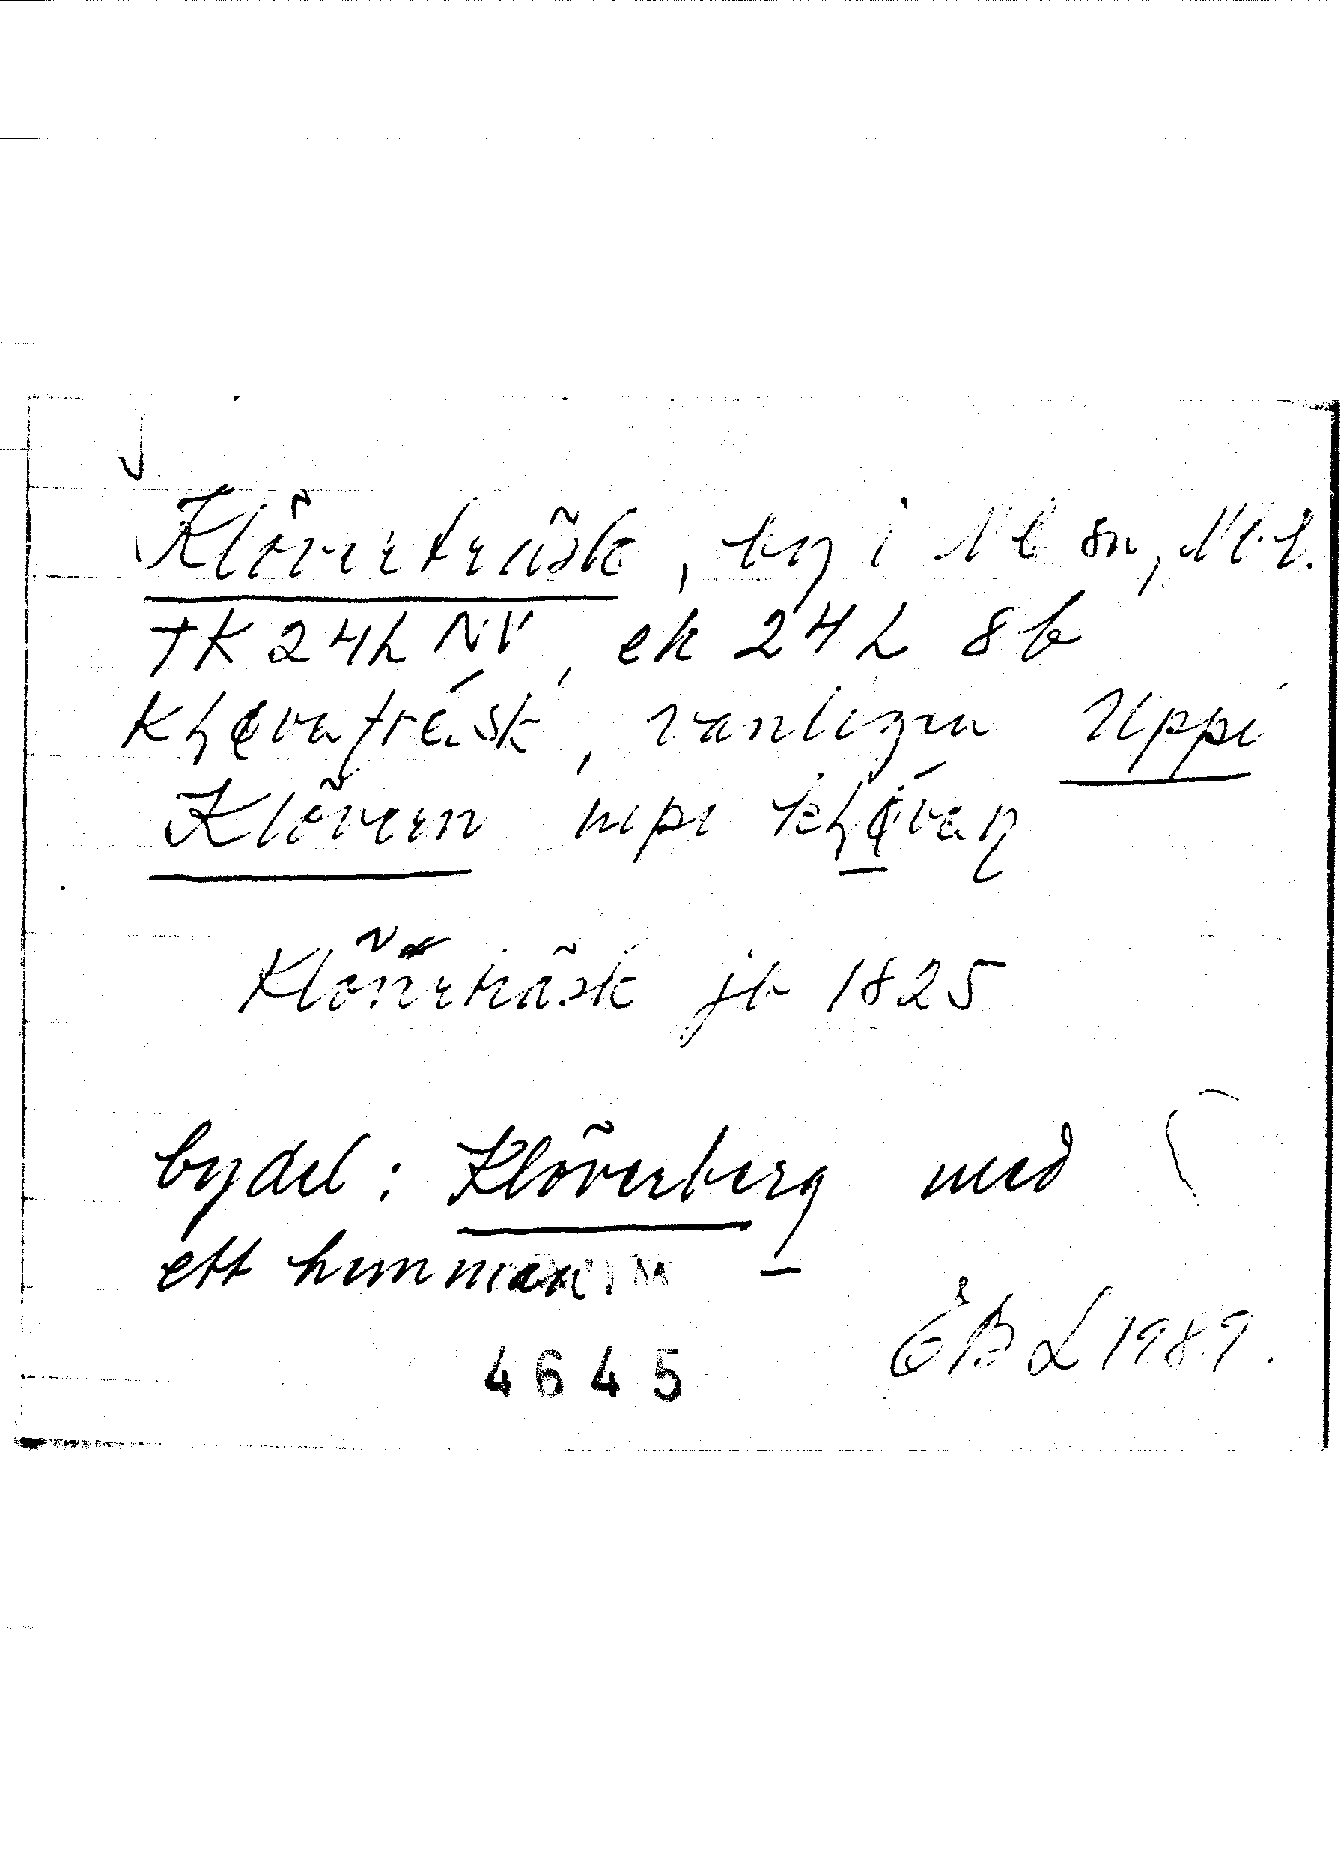 Klöverträsk, by i Nb sn, Nb l.
TK 24L NV, ek 24 L 8b
vanligen Uppi
Klövern
Klöfverträsk jb 1825
bydel: Klöverberg med
ett hemman
EBL 1989.
4645